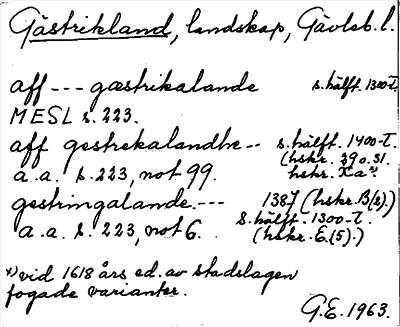 Gästrikland, landskap, Gävleb. l.
aff --- gæstrikalande s. hälft. 1300-t.
MESL s. 223.
aff gestrekalandhe -- s. hälft. 1400-t.
(hskr. 290.31.
a.a. s. 223, not 99. hskr. Xa*).
gestringalande. --- 1387 (hskr. B(2).)
s. hälft. 1300-t.
a.a. s. 223, not 6. (hskr. E.(5).)
*) vid 1618 års ed. av stadslagen
fogade varianter.
G.E. 1963.